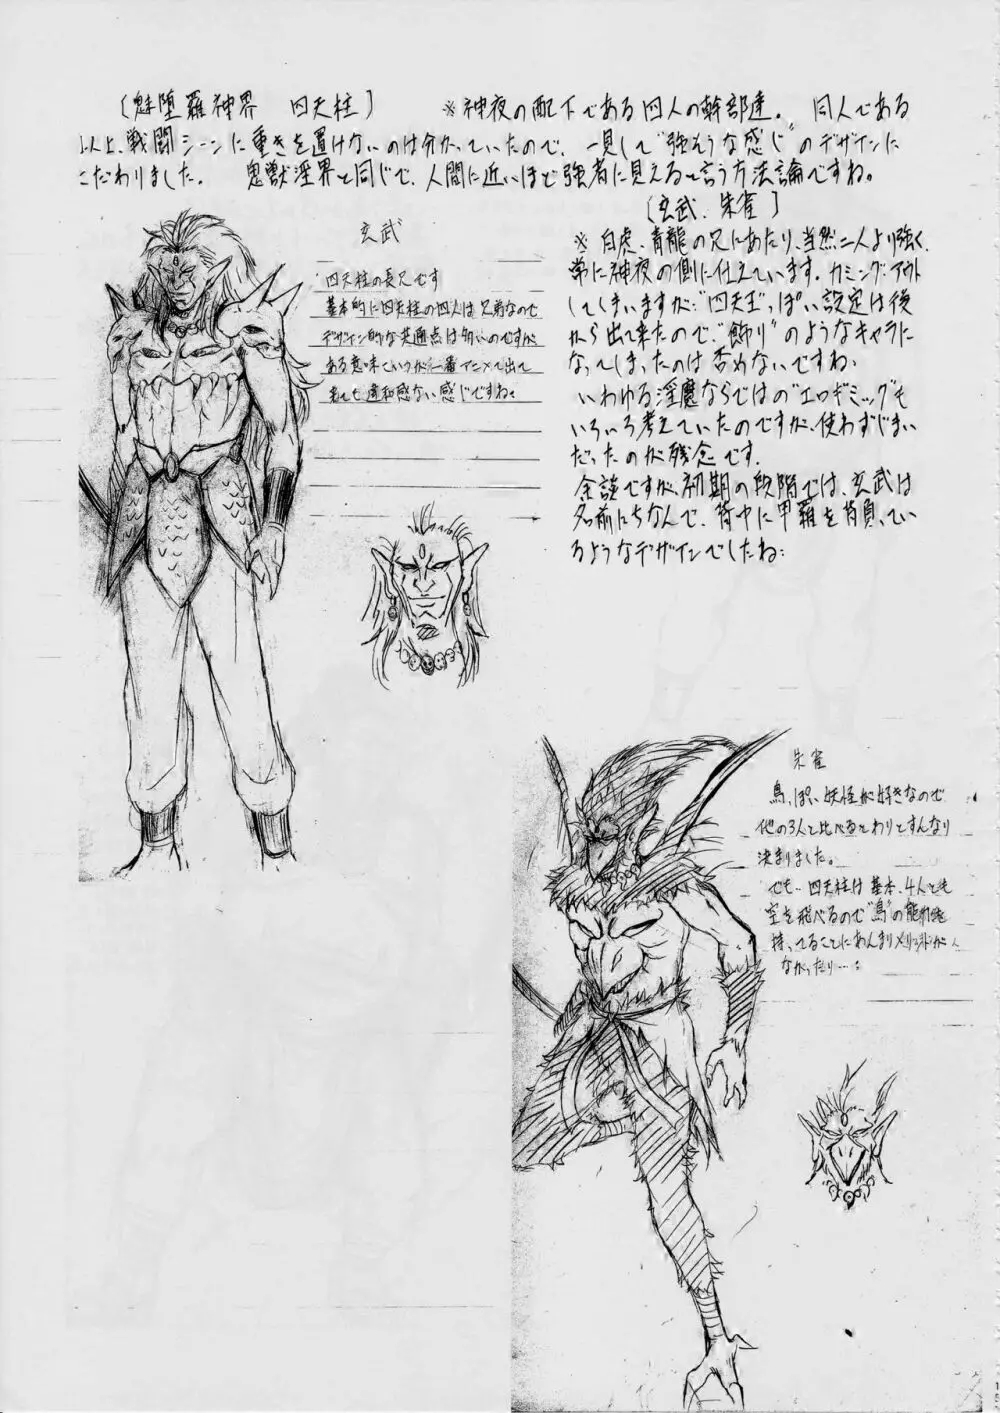 〔魅堕羅神界　四天柱〕　※神夜の配下である四人の幹部達。　同人である
以上、戦闘シーンに重きを置けないのは分かっていたので、一見して“強そうな感じ”のデザインに
こだわりました。　鬼獣淫界と同じで、人間に近いほど強者に見えると言う方法論ですね。
玄武
四天柱の長兄です
基本的に四天柱の四人は兄弟なので
デザイン的な共通点は多いのですが
ある意味でいうが一番アニメで出て
きても違和感ない感じですね。
〔玄武、朱雀〕
※　白虎、青龍の兄にあたり、当然二人より強く、
常に神夜の側に仕えています。カミングアウト
してしまいますが、“四天王”っぽい設定は後
から出て来たので、“飾り”のようなキャラに
なってしまったのは否めないですね。
いわゆる淫魔ならではの“エロギミック”も
いろいろ考えていたのですが、使わずじまい
だったのが残念です。
余談ですが、初期の段階では、玄武は
名前にちなんで、背中に甲羅を背負ってい
るようなデザインでしたね。
朱雀
鳥っぽい妖怪が好きなので
他の3人と比べるとわりとすんなり
決まりました。
でも…四天柱は基本、4人とも
空を飛べるので“鳥”の能力を
持ってることにあんまりメリットが
なかったり…。